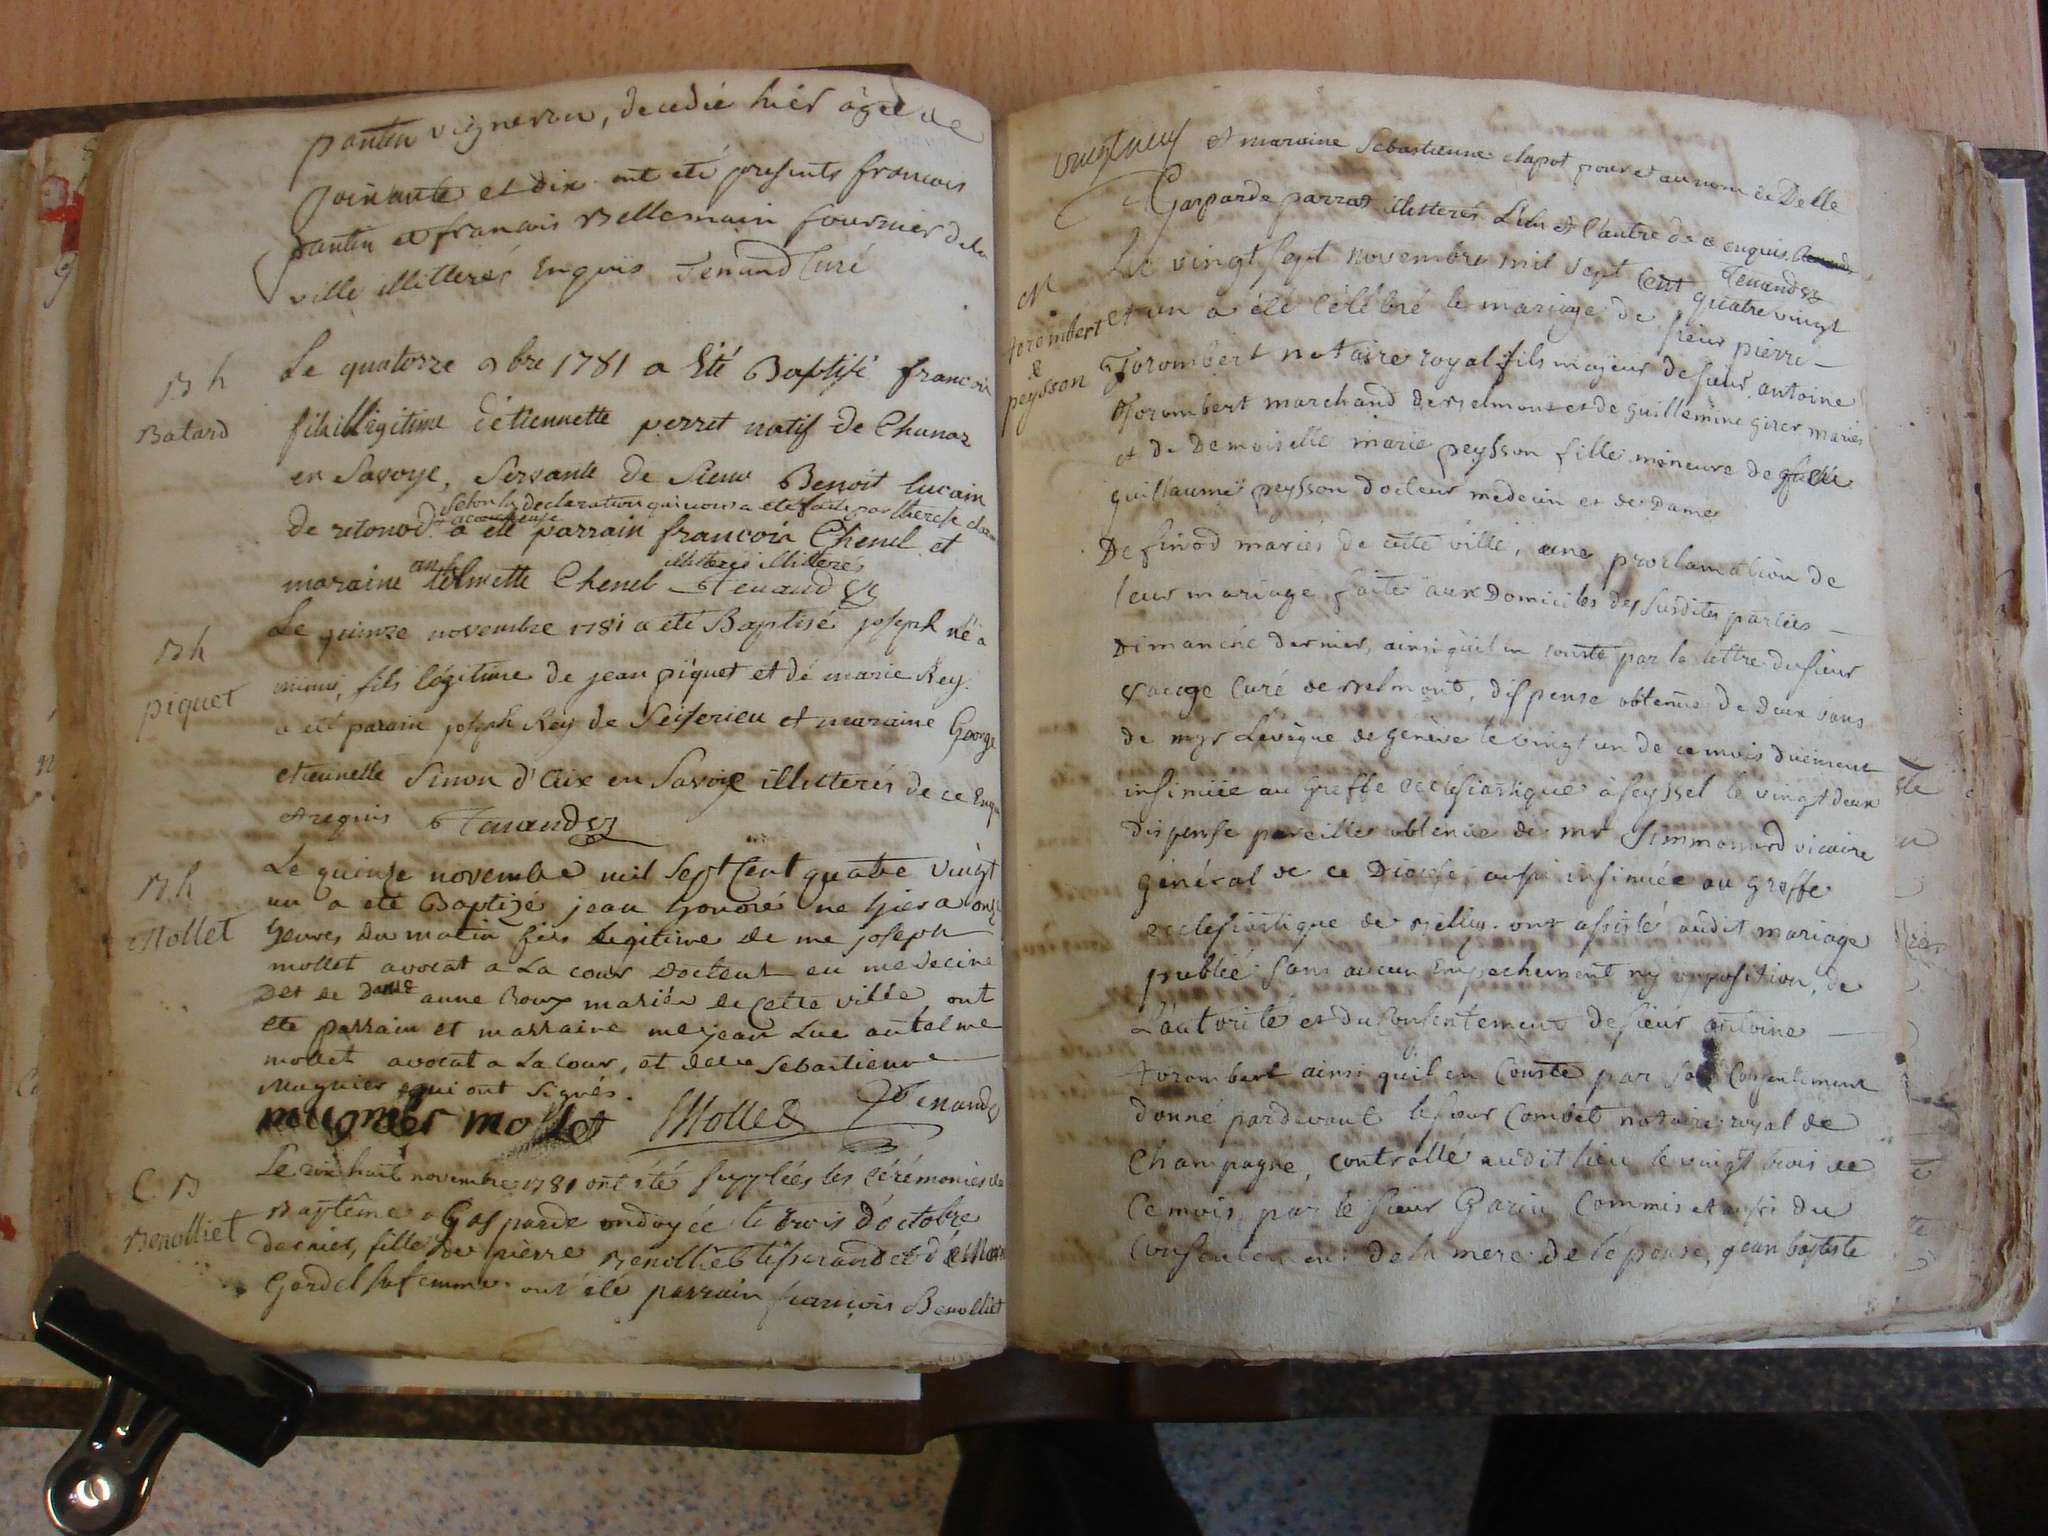 pantin vigneron, decedié hier âgé de
soixante et dix ont eté presents francois
pantin et francois Bellemain fournier de la
ville illitterés Enquis Tenand Curé
B h
Batard
Le quatorze 9bre 1781 a Eté Baptisé francois
fils illegitime d'étiennette perret natif de Chanaz
en Savoye, servante de sieur Benoit lucain
selon la declaration qui nous a eté faite par therese
de retonod a eté parrain francois Chenel et
maraine anthelmette Chenel illiterés Tenand
B h
piquet
Le quinze novembre 1781 a eté Baptisé joseph né à
minuit, fils légitime de jean piquet et de marie Rey.
a eté parain joseph Rey de Seiserieu et maraine George
etiennette Simon d'Aix en Savoye illitterés de ce Enquis
et requis Tenand
B h
Mollet
Le quinze novembre mil sept Cent quatre vingt
un a eté Baptizé jean honoré né hier a onze
heures du matin fils legitime de me joseph
mollet avocat a La cour docteur en medecine
et de dame anne Roux mariés de Cette ville, ont
eté parrain et marraine me jean Luc antelme
mollet avocat a La Cour, et delle Sebastienne
Mugnier qui ont signés.
mugnier mollet Mollet Tenand
C B
Benolliet
Le dix huit novembre 1781 ont été suppléés les Cérémonies du
Baptême a Gasparde ondoyée le trois d'octobre
dernier, fille de pierre Benolliet tisserand et de
Gardel sa femme ont été parrain francois Benolliet
vingt neuf
et maraine Sebastienne clapot pour et au nom de Delle
Gasparde parrat illitterés L'un et l'autre de ce enquis
Tenand
M
forombert
&
peysson
Le vingt sept novembre mil sept Cent quatre vingt
et un a été Célébré le mariage de sieur pierre
forombert notaire royal fils majeur de sieur antoine
forombert marchand de Belmont et de guillemine girer mariés
et de Demoiselle marie peysson fille mineure de
guillaume peysson docteur médecin et de Dame
De finod mariés de cette ville, une proclamation de
leur mariage faite aux Domiciles des susdites parties
Dimanche dernier, ainsi qu'il en conste par la lettre du sieur
curé de Belmont, dispense obtenue de deux bans
de mgr L'évêque de genève le vingt un de ce mois duëment
insinuée au greffe ecclesiastique à seyssel le vingt deux
dispense pareille obtenüe de mr Simmonard vicaire
général de ce Diocese, aussi insinuée au greffe
ecclesiastique de Belley. ont assisté audit mariage
publié sans aucun Empechement ny opposition, de
L'autorité et du Consentement de sieur antoine
forombert ainsi qu'il en Conste par son Consentement
donné pardevant le sieur Combet notaire royal de
Champagne, Controllé audit lieu le vingt trois de
Ce mois par le sieur Garin Commis et aussi du
Consentement de la mere de l'épouse, jean baptiste